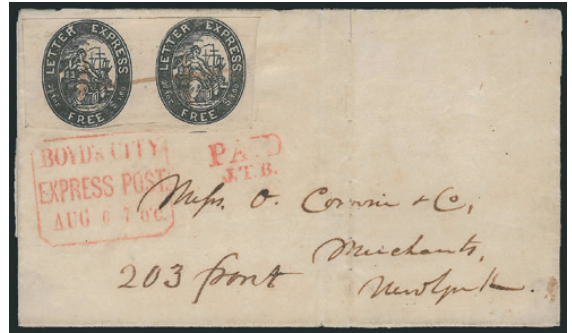 LETTER EXPRESS
FREE
LETTER EXPRESS
FREE
BOYD'S CITY
EXPRESS POST.
AUG 6 7 O'C.
PAID
J.T.B.
Messrs. O. & Co,
Merchants,
203 front
New York.